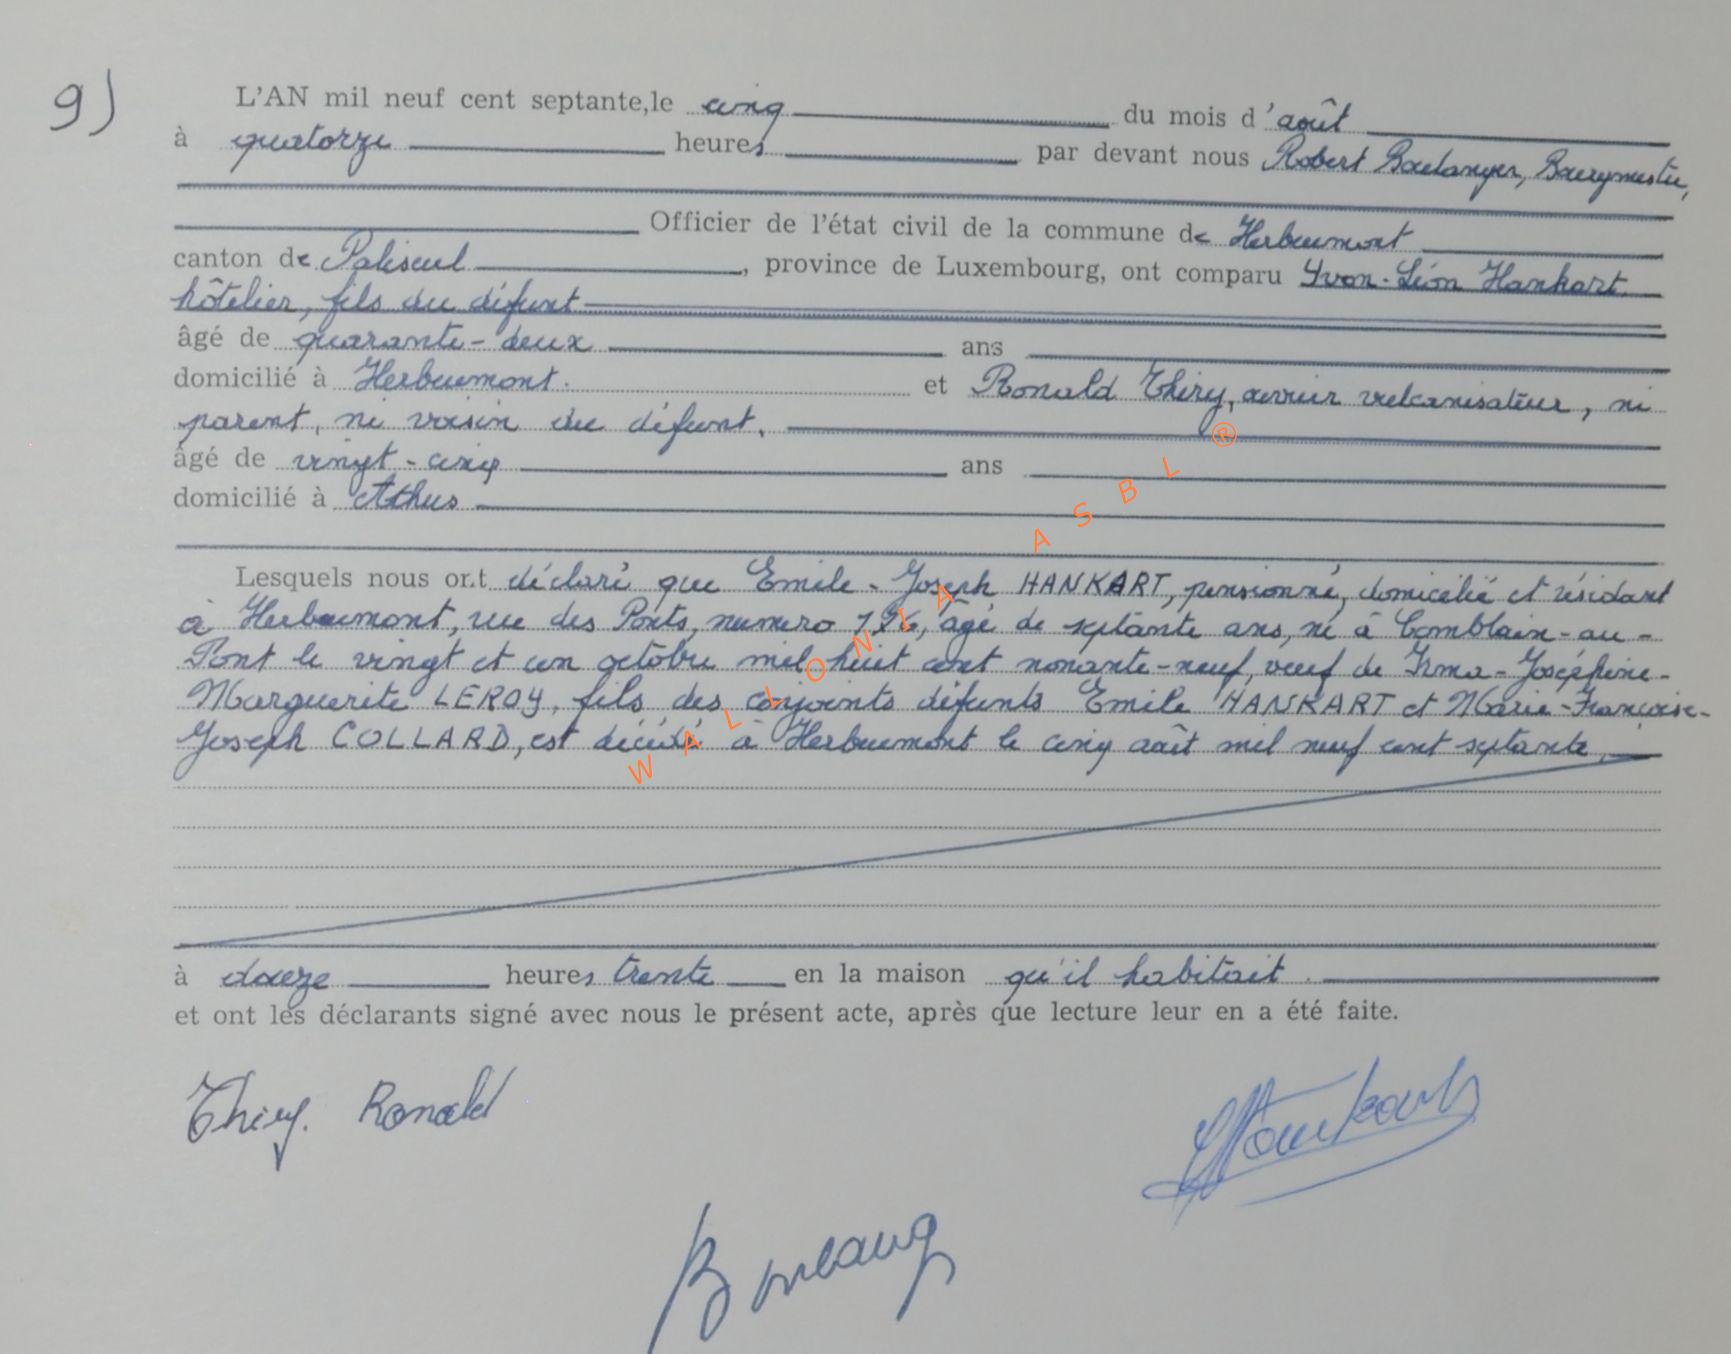 9)
L'AN mil neuf cent septante, le cinq du mois d'août
à quatorze heures par devant nous Robert Boulanger, Bourgmestre,
Officier de l'état civil de la commune de Herbeumont
canton de Paliseul, province de Luxembourg, ont comparu Yvon-Léon Hankart
hôtelier, fils du défunt
âgé de quarante-deux ans
domicilié à Herbeumont. et Ronald Thiry, ouvrier vulcanisateur, ni
parent, ni voisin du défunt.
âgé de vingt-cinq ans
domicilié à Athus
Lesquels nous ont déclaré que Emile-Joseph HANKART, pensionné, domicilié et résidant
à Herbeumont, rue des Ponts, numero, âgé de septante ans, né à Comblain-au-
Pont le vingt et un octobre mil huit cent nonante-neuf, veuf de Irma-Joséphine-
Marguerite LEROY, fils des conjoints défunts Emile HANKART et Marie-Françoise-
Joseph COLLARD, est décédé à Herbeumont le cinq août mil neuf cent septante,
à douze heures trente en la maison qu'il habitait.
et ont les déclarants signé avec nous le présent acte, après que lecture leur en a été faite.
Thiry. Ronald
Hankart
Boulang
WALLONIA ASBL ®